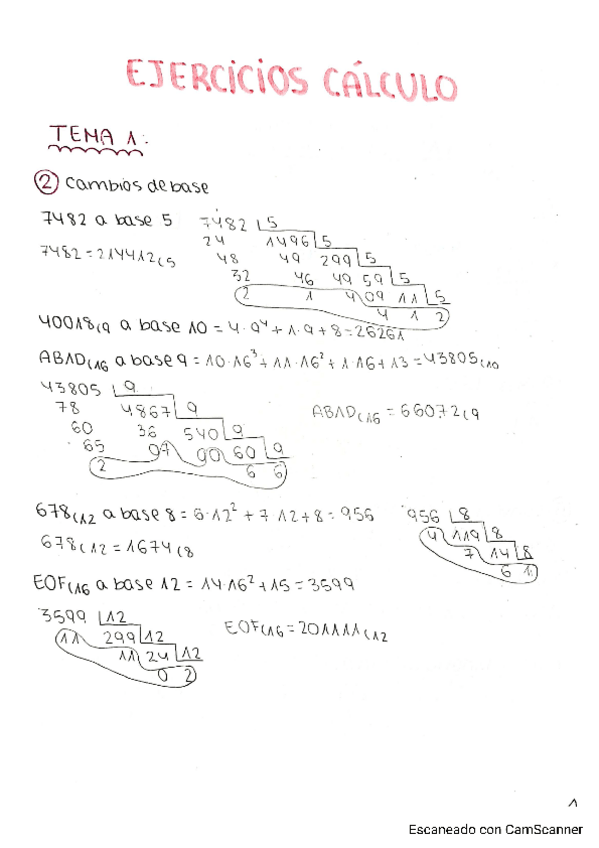 EJERCICIOS CÁLCULO
TEMA 1:
② Cambios de base
7482 a base 5
7482 = 214412(5
7482 5
24 1496 5
48 49 299 5
32 46 49 59 5
2 1 4 09 11 5
4 1 2
40018(9 a base 10 = 4·9⁴ + 1·9 + 8 = 26261
AB1D(16 a base 9 = 10·16³ + 11·16² + 1·16 + 13 = 43805(10
43805 9
78 4867 9
60 36 540 9
65 07 00 60 9
2 6 6
AB1D(16 = 66072(9
678(12 a base 8 = 6·12² + 7·12 + 8 = 956
678(12 = 1674(8
956 8
4 119 8
7 14 8
6 1
E0F(16 a base 12 = 14·16² + 15 = 3599
3599 12
11 299 12
11 24 12
0 2
E0F(16 = 201111(12
1
Escaneado con CamScanner